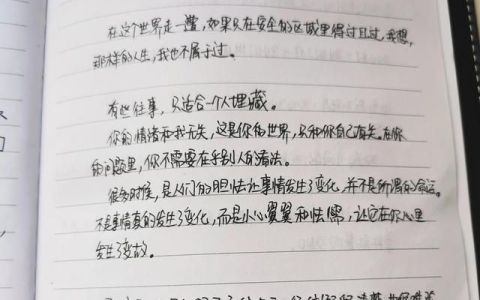 在这个世界走一遭,如果只在安全的区域里得过且过,我想,
那样的人生,我也不屑于过。
有些往事,只适合一个人埋藏。
你的情绪和我无关,这是你的世界,只和你自己有关。在你
的问题里,你不需要在乎别人的看法。
很多时候,是人们的胆怯让事情发生了变化,并不是所谓的命运。
不是事情真的发生了变化,而是小心翼翼和怯懦,让它在你心里
发生了变故。